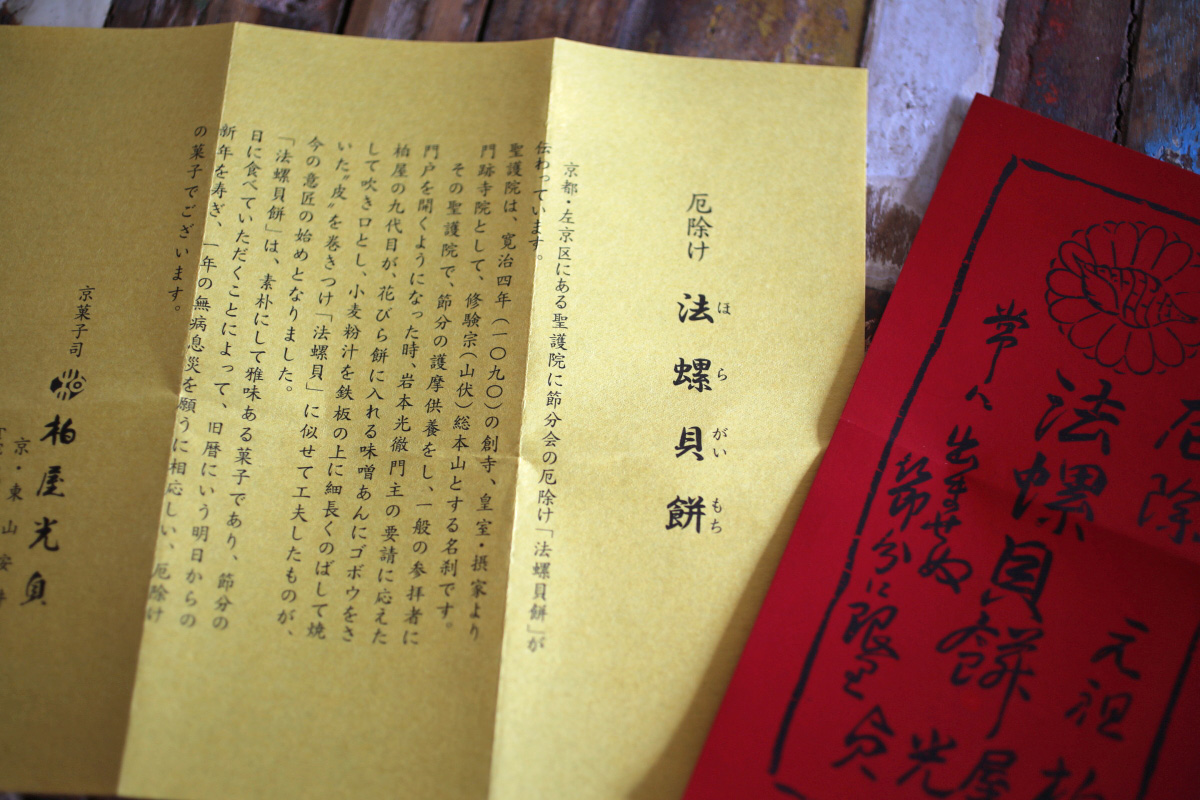 厄除け 法螺貝餅
ほ ら がい もち
京都・左京区にある聖護院に節分会の厄除け「法螺貝餅」が
伝わっています。
聖護院は、寛治四年(一〇九〇)の創寺、皇室・摂家より
門跡寺院として、修験宗(山伏)総本山とする名刹です。
その聖護院で、節分の護摩供養をし、一般の参拝者に
門戸を開くようになった時、岩本光徹門主の要請に応えた
柏屋の九代目が、花びら餅に入れる味噌あんにゴボウをさ
して吹き口とし、小麦粉汁を鉄板の上に細長くのばして焼
いた〝皮〟を巻きつけ「法螺貝」に似せて工夫したものが、
今の意匠の始めとなりました。
「法螺貝餅」は、素朴にして雅味ある菓子であり、節分の
日に食べていただくことによって、旧暦にいう明日からの
新年を寿ぎ、一年の無病息災を願うに相応しい、厄除け
の菓子でございます。
京菓子司 柏屋光貞
京・東山安井
厄除
法螺貝餅
常に出ませぬ
節分に限る
元祖 柏
屋
光
貞